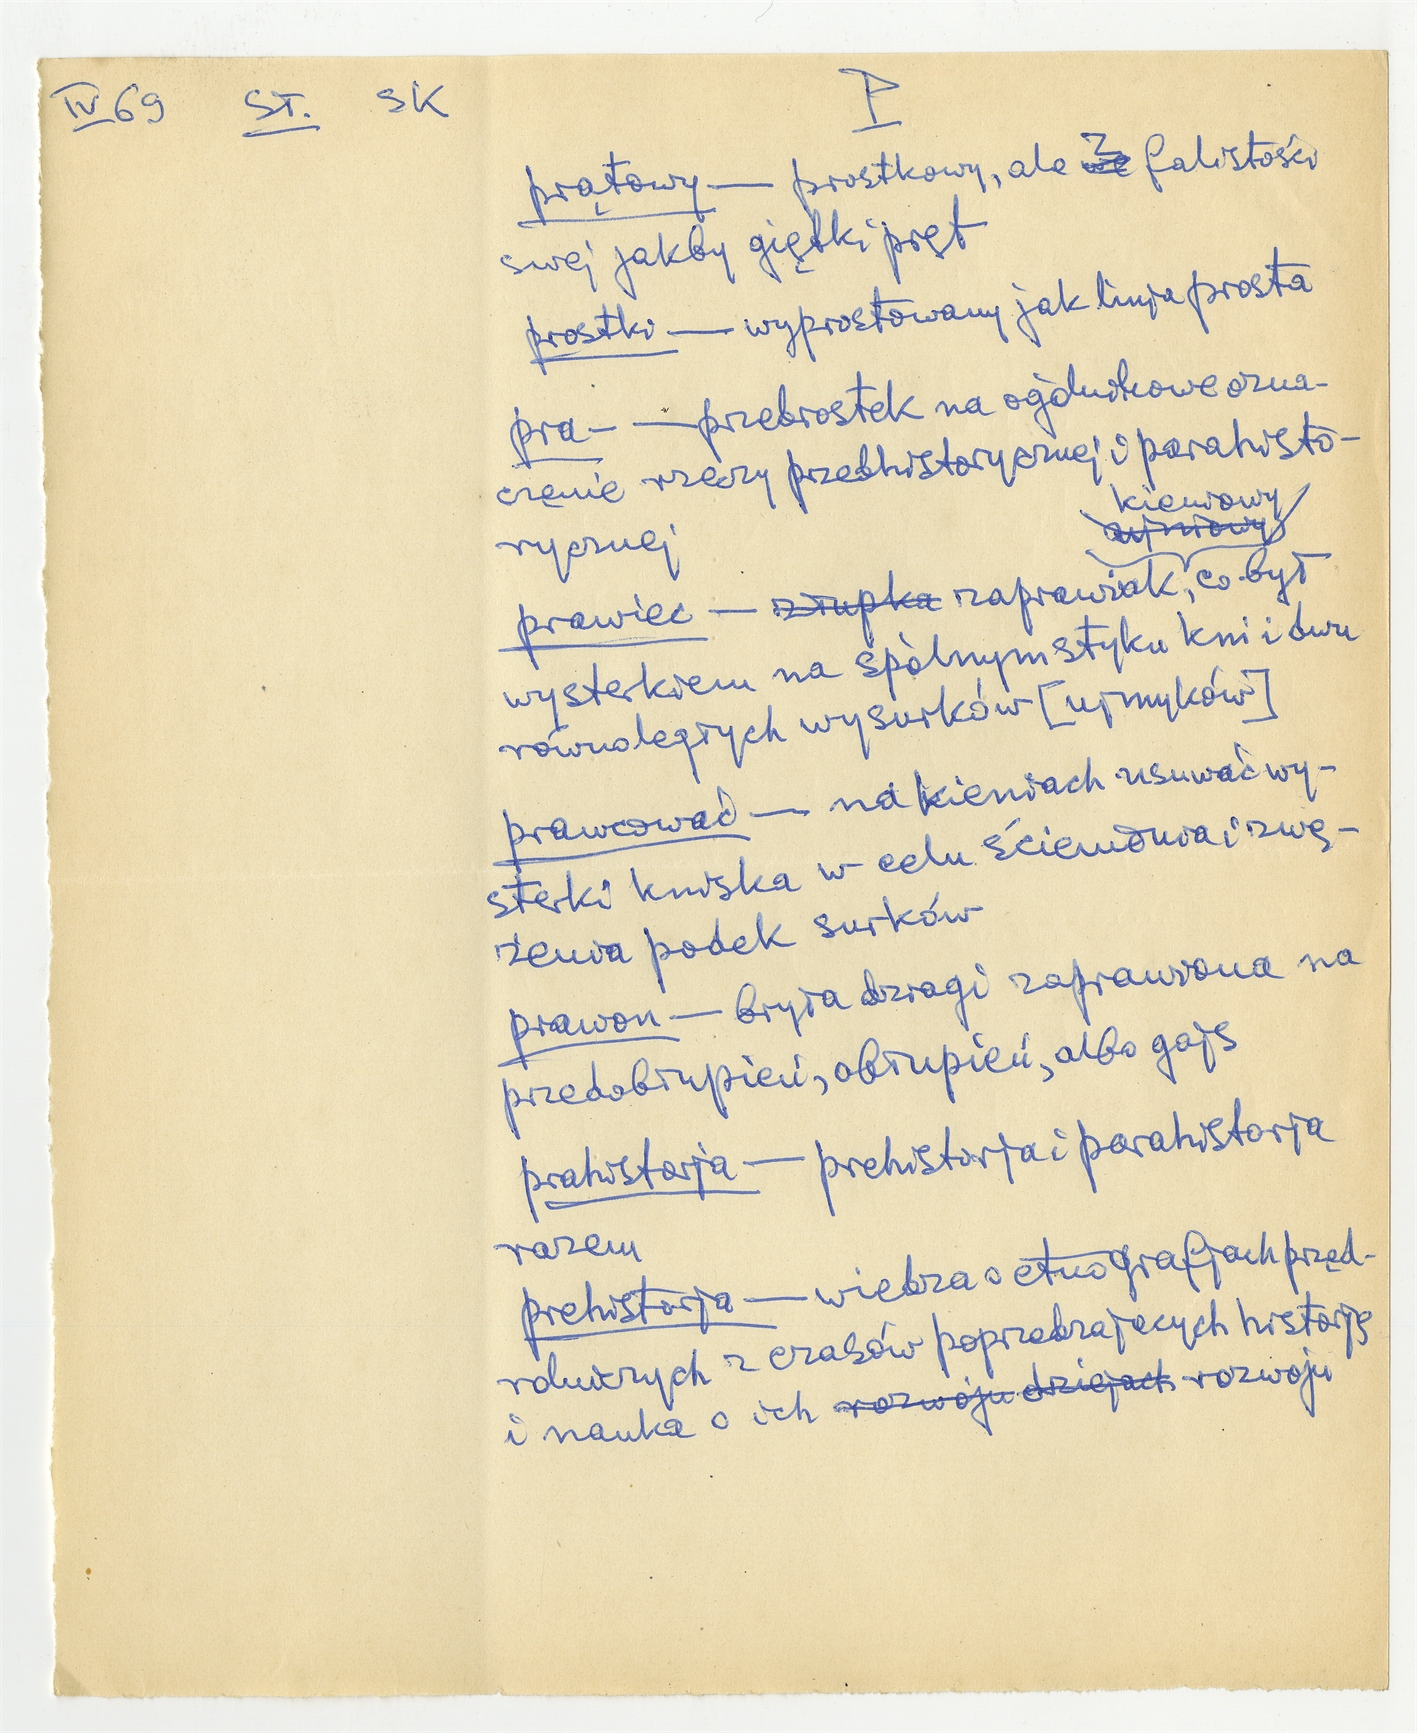 IV 69 ST. SK P
prątowy — prostkowy, ale z falistości
swej jakby giętki pręt
prostki — wyprostowany jak linja prosta
pra- — przebrostek na ogólnikowe ozna-
czenie rzeczy przedhistorycznej i parahisto-
rycznej
kieniowy
prawiec — złupka zaprawiak, co był
wysterkiem na spólnym styku kni i dwu
równoległych wysurków [ujmyków]
prawcować — na kieniach usuwać wy-
sterki kniska w celu ścienienia i zwę-
żenia podek surków
prawon — bryła dziagi zaprawiona na
przedobłupień, obłupień, albo gajs
prahistorja — prehistorja i parahistorja
razem
prehistorja — wiedza o etnografjach przed-
rolniczych z czasów poprzedzających historję
i nauka o ich rozwoju dziejach rozwoju